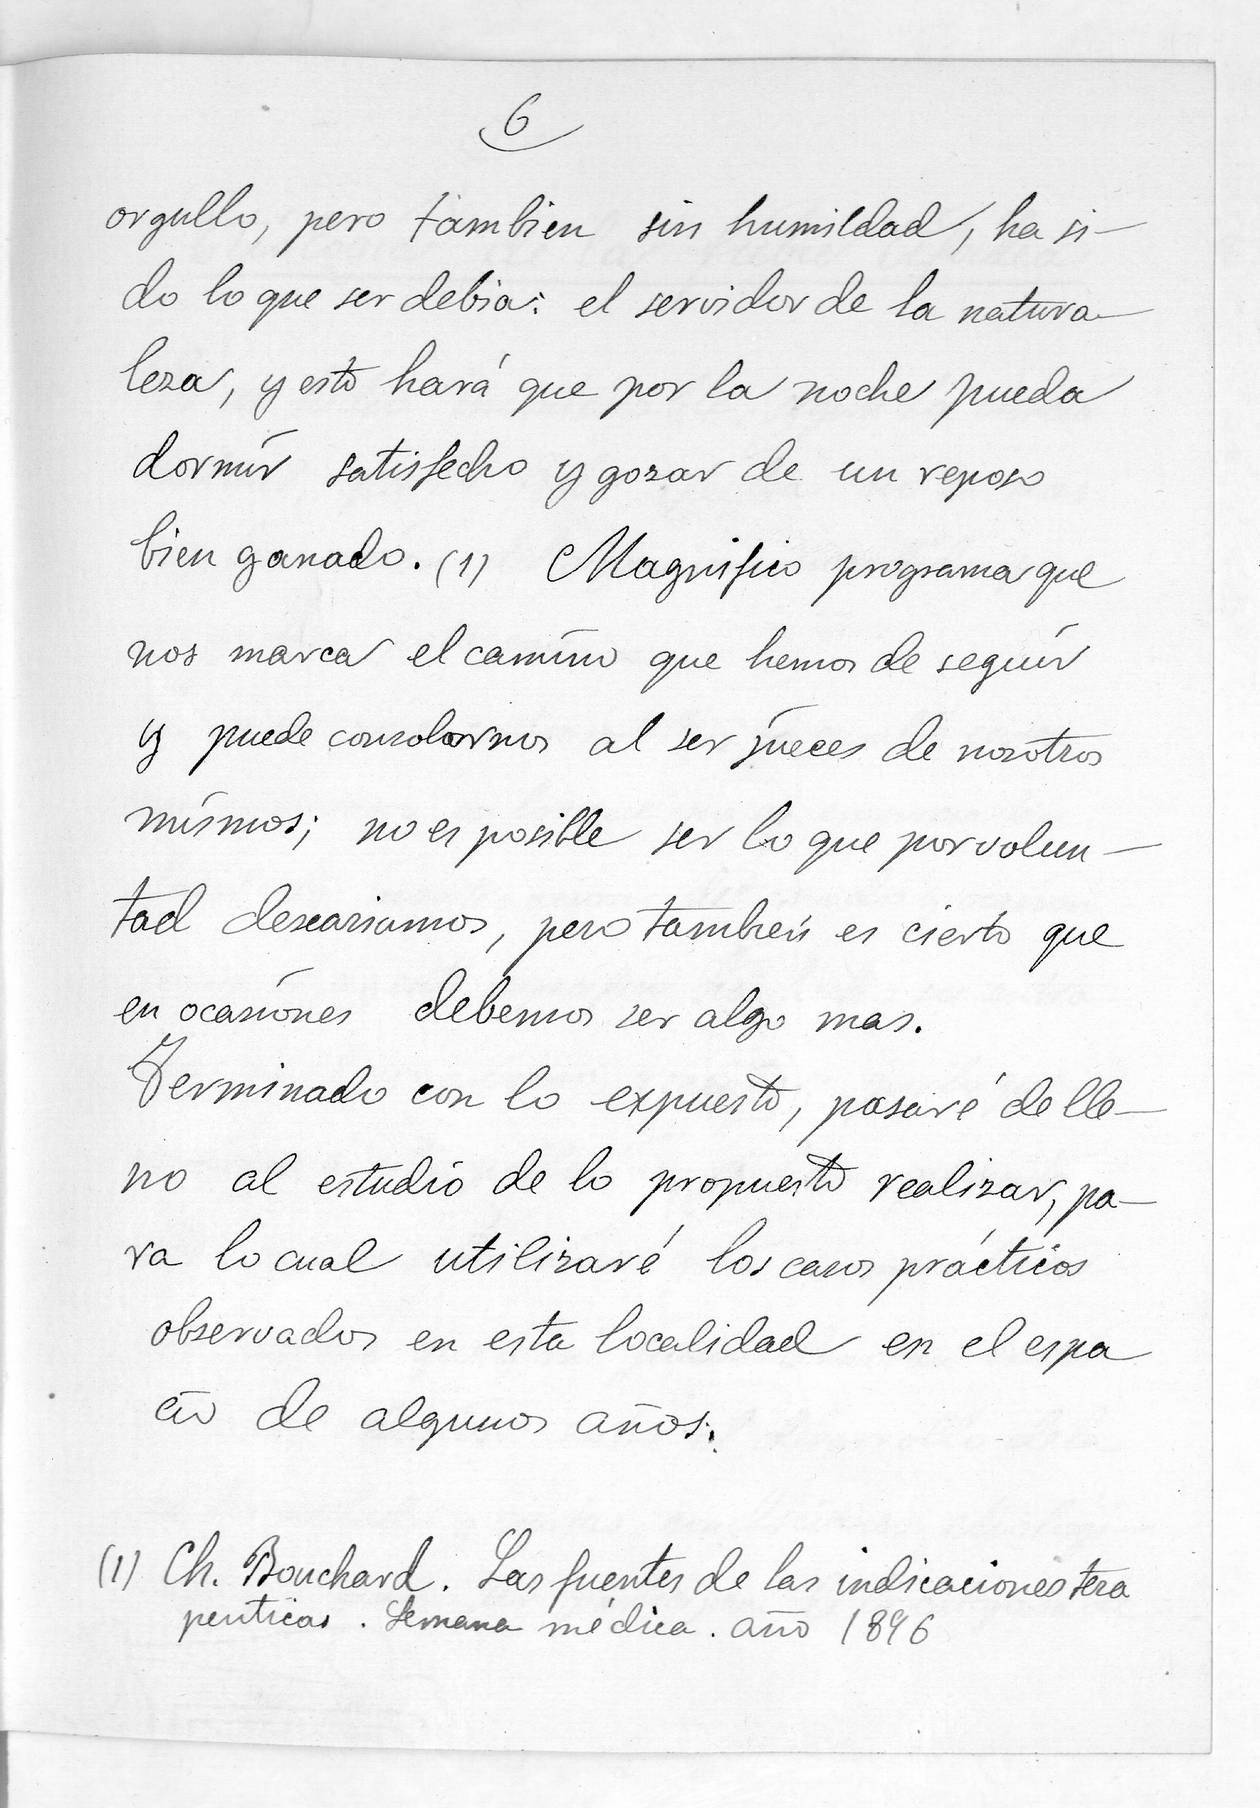 6
orgullo, pero tambien sin humildad, ha si-
do lo que ser debia: el servidor de la natura-
leza, y esto hará que por la noche pueda
dormír satisfecho y gozar de un reposo
bien ganado. (1) Magnifico programa que
nos marca el camino que hemos de seguír
y puede consolarnos al ser júeces de nosotros
mísmos; no es posible ser lo que por volun-
tad deseariamos, pero tambień es cierto que
en ocasiónes debemos ser algo mas.
Terminado con lo expuesto, pasaré de lle-
no al estudio de lo propuesto realizar, pa-
ra lo cual utilizaré los casos prácticos
observados en esta localidad en el espa
cio de algunos años.
(1) Ch. Bouchard. Las fuentes de las indicaciones tera
peuticas. Semana médica. año 1896